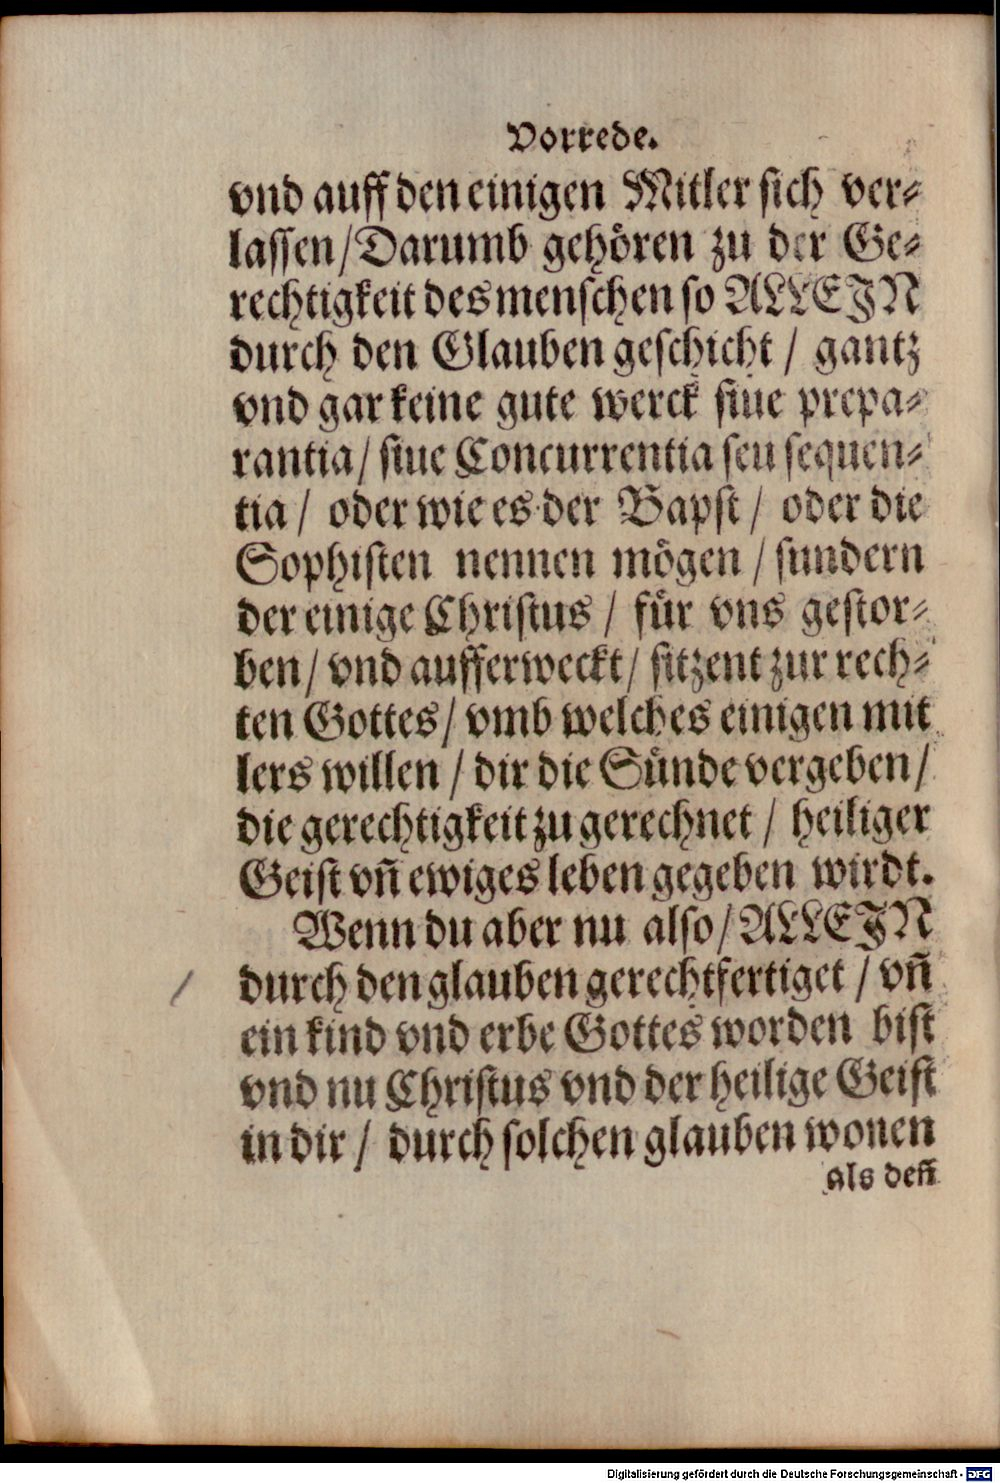 Vorrede.
vnd auff den einigen Mitler sich ver⸗
lassen/Darumb gehören zu der Ge⸗
rechtigkeit des menschen so ALLEIN
durch den Glauben geschicht / gantz
vnd gar keine gute werck siue prepa⸗
rantia/ siue Concurrentia seu sequen⸗
tia / oder wie es der Bapst / oder die
Sophisten nennen mögen / sundern
der einige Christus / für vns gestor⸗
ben/ vnd aufferweckt/ sitzent zur rech⸗
ten Gottes/ vmb welches einigen mit
lers willen / dir die Sünde vergeben/
die gerechtigkeit zu gerechnet / heiliger
Geist vñ ewiges leben gegeben wirdt.
Wenn du aber nu also/ ALLEIN
durch den glauben gerechtfertiget / vñ
ein kind vnd erbe Gottes worden bist
vnd nu Christus vnd der heilige Geist
in dir / durch solchen glauben wonen
als deñ
Digitalisierung gefördert durch die Deutsche Forschungsgemeinschaft - DFG